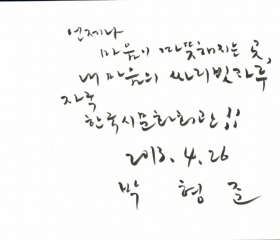 언제나
마음이 따뜻해지는 곳,
내 마음의 싸리빗자루
자죽
한국시문화회관!!
2013. 4. 26
박 형 준